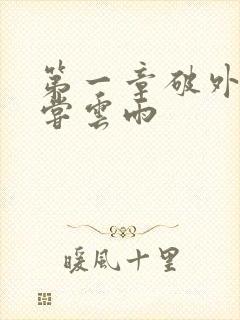 第一章破外
嘗雲雨
暖風十里